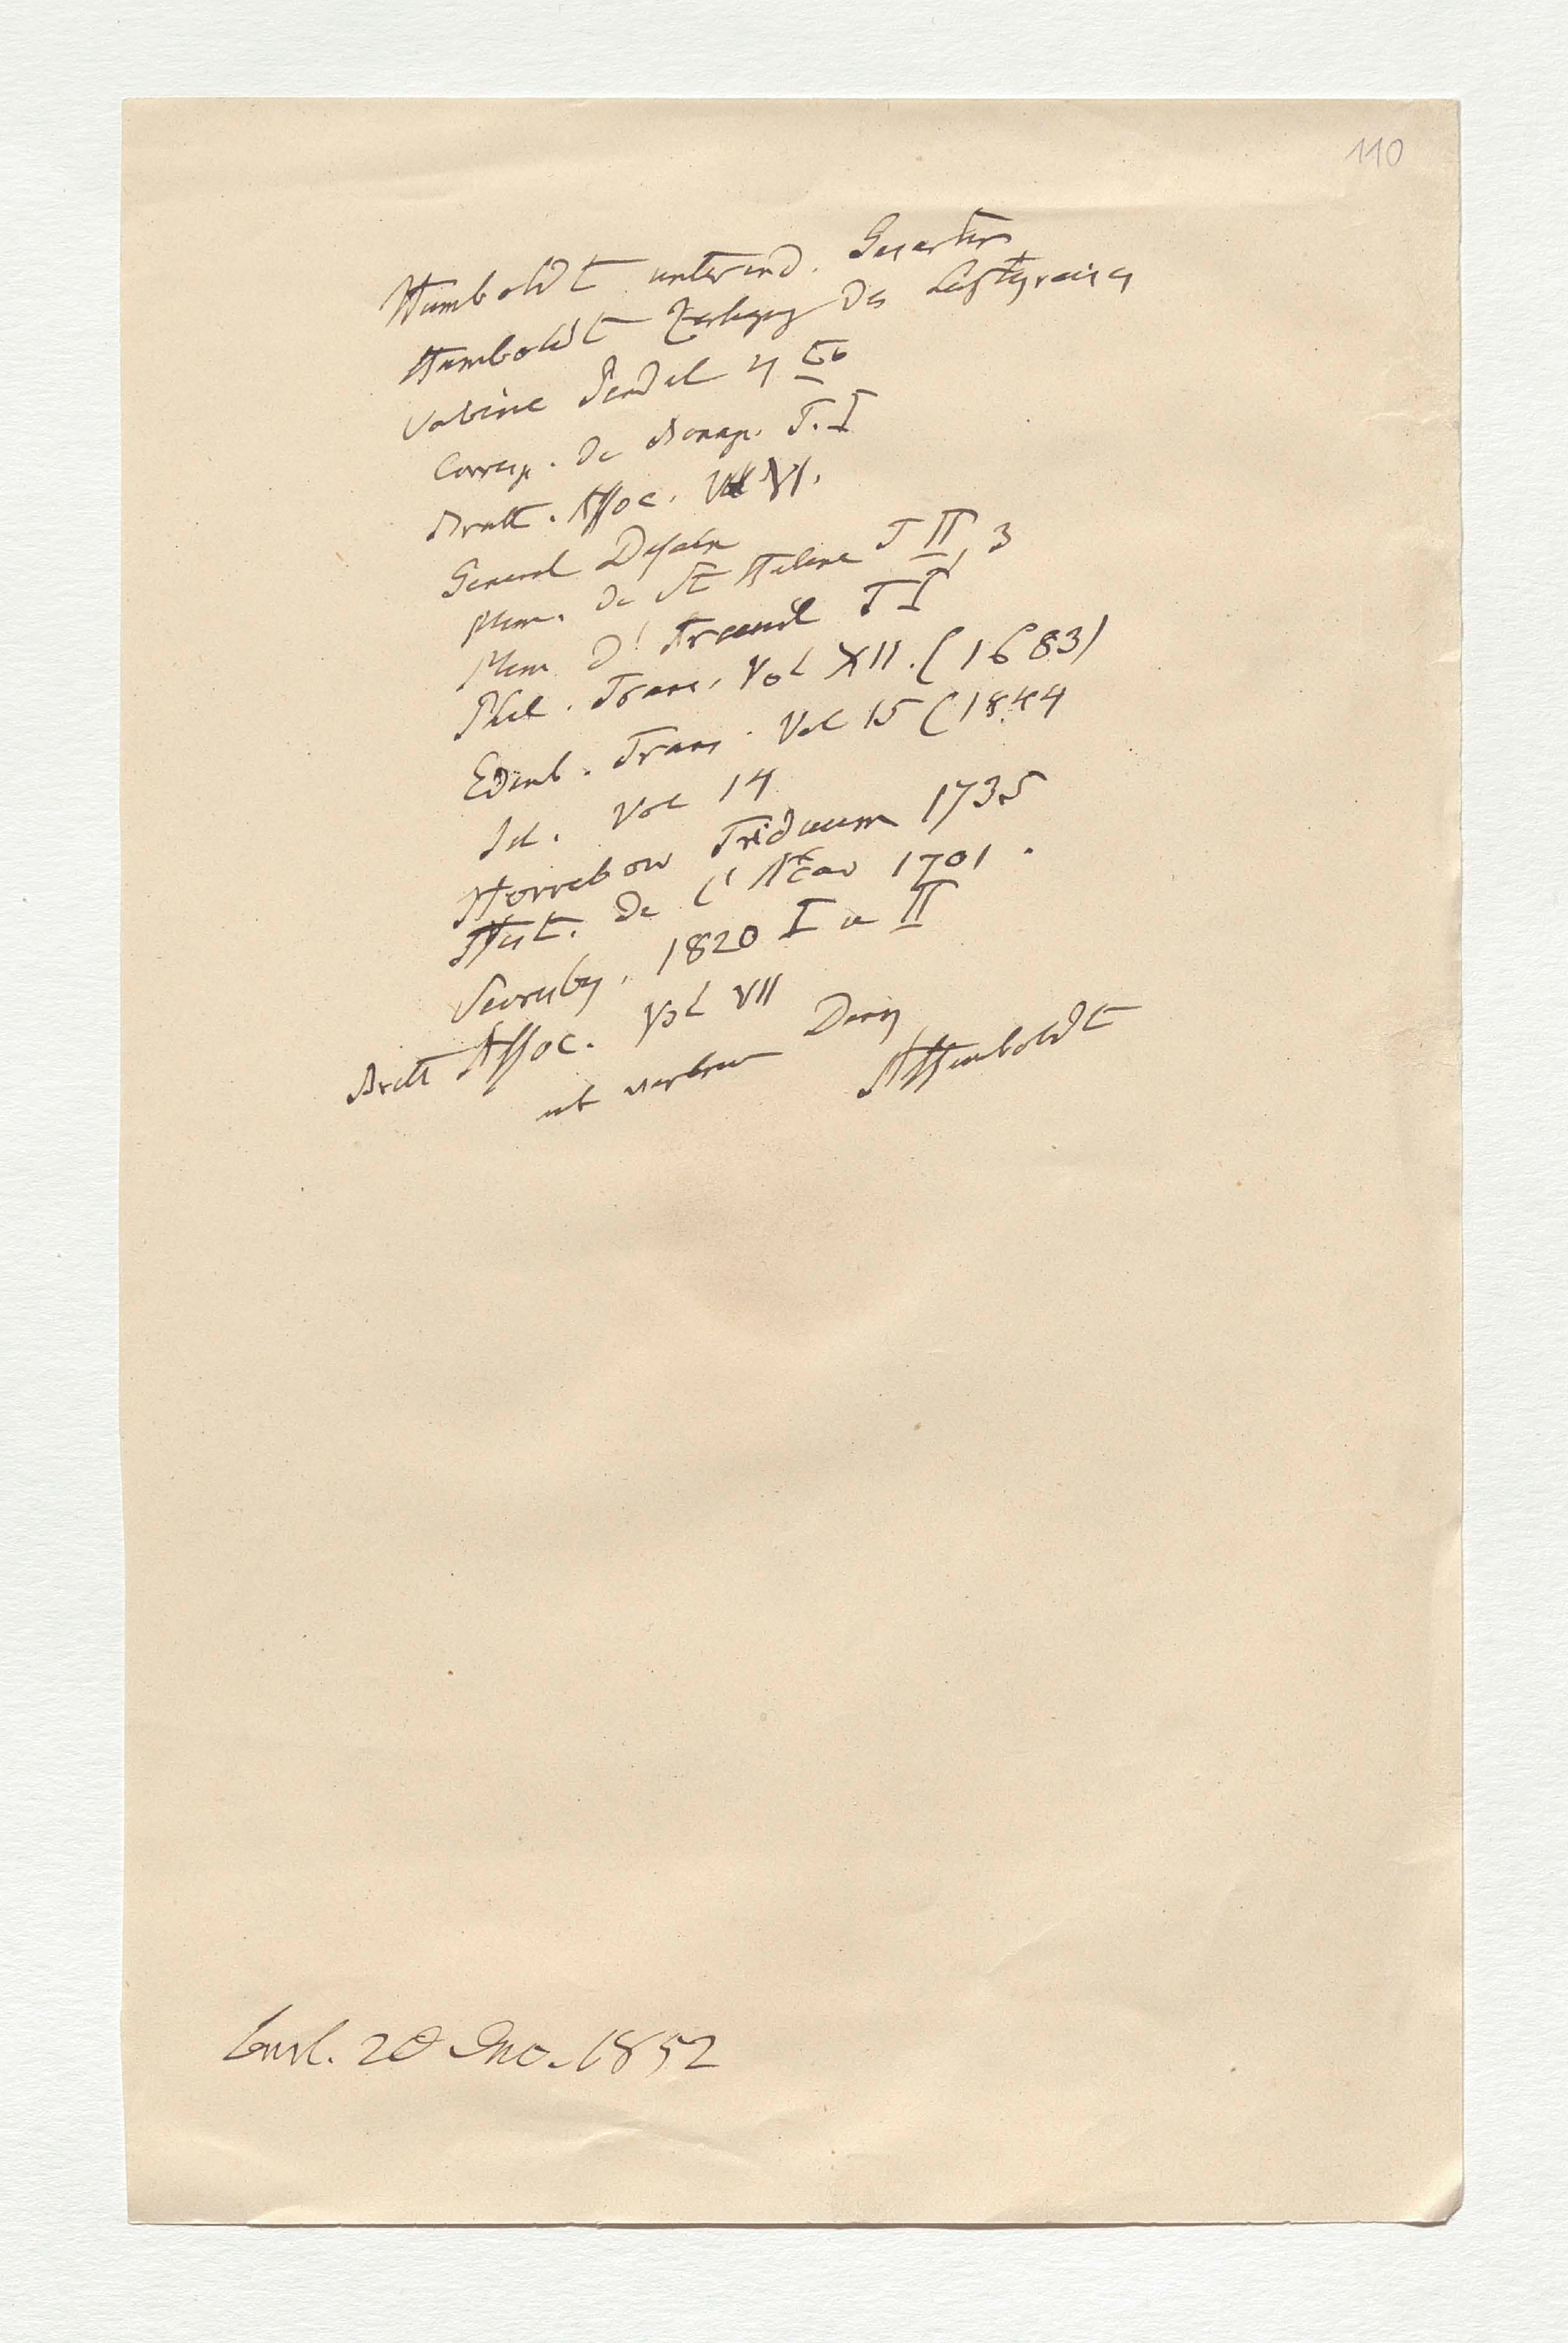 110
Humboldt unterird. Gasarten
Humboldt Zerlegg des Luftkreises
Sabine Pendel 4 to
Corresp. de Bonap. T. I
Britt. Assoc. Vol VI.
General Desaix
Mem. de St Helene T II, 3
Mem d'Arcueil T I
Phil. Trans. Vol XII. (1683)
Edinb. Trans. Vol 15 (1844
Id. Vol 14
Horrebow Triduum 1735
Hist. de l'Acad 1701.
Scoresby. 1820 I u II
Britt Assoc. Vol VII
mit Dank
AHumboldt
1852